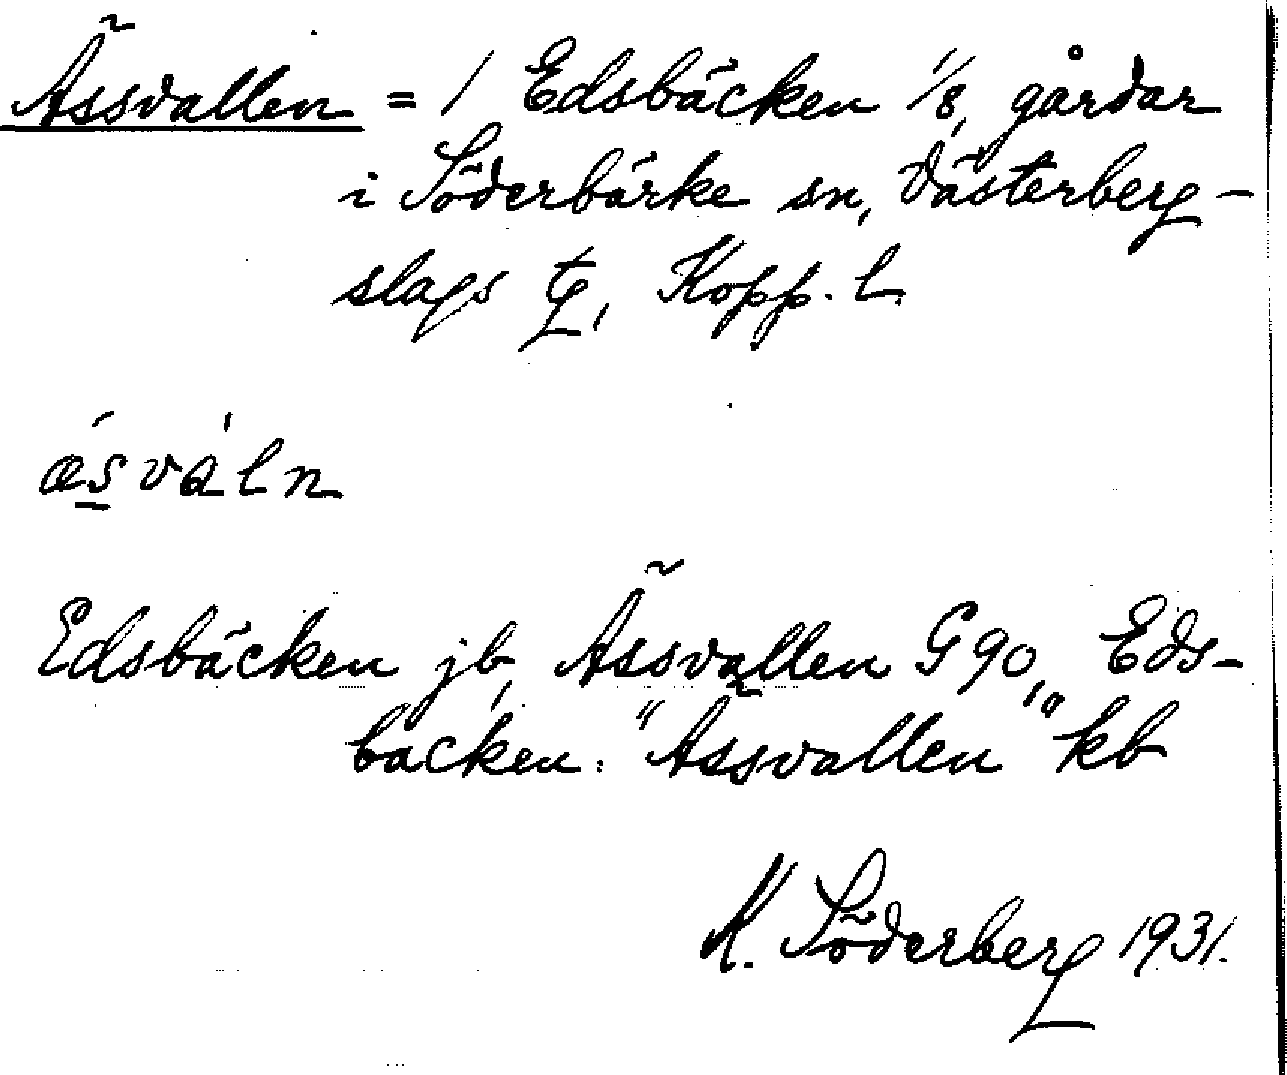 Ässvallen = / Edsbäcken 1/8, gårdar
i Söderbärke sn, Västerberg-
slags tg, Kopp. l.
ǽsvàln
Edsbäcken jb, Ässvallen G 90, Eds-
backen: "Ässvallen" kb
K. Söderberg 1931.